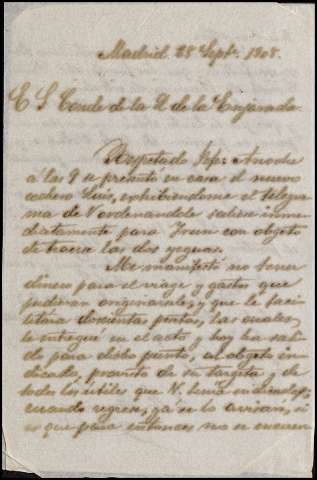 Madrid 28 Sept. 1908.
E S Conde de la P. de la Enjarada.
Respetado Jefe: Anoche
a las 9 se presentó en casa el nuevo
cochero Luis, exhibiendome el telegra
ma de V ordenandole saliera inme
diatamente para Irun con objeto
de traerse las dos yeguas.
Me manifestó no tener
dinero para el viage y gastos que
pudieran originarsele, y que le faci
litára doscientas pesetas, las cuales
le entregué en el acto y hoy ha sali
do para dicho punto, con objeto in
dicado, provisto de su targeta y de
todos los útiles que V.
cuando regrese, ya se lo avisaré, si
es que para entonces no se encuen